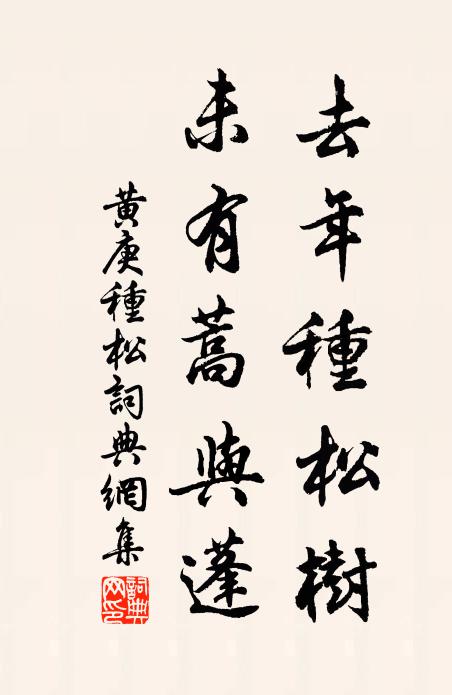 去年種松樹
未有蒿與蓬
黃庚種松詞典網集
詞典網印